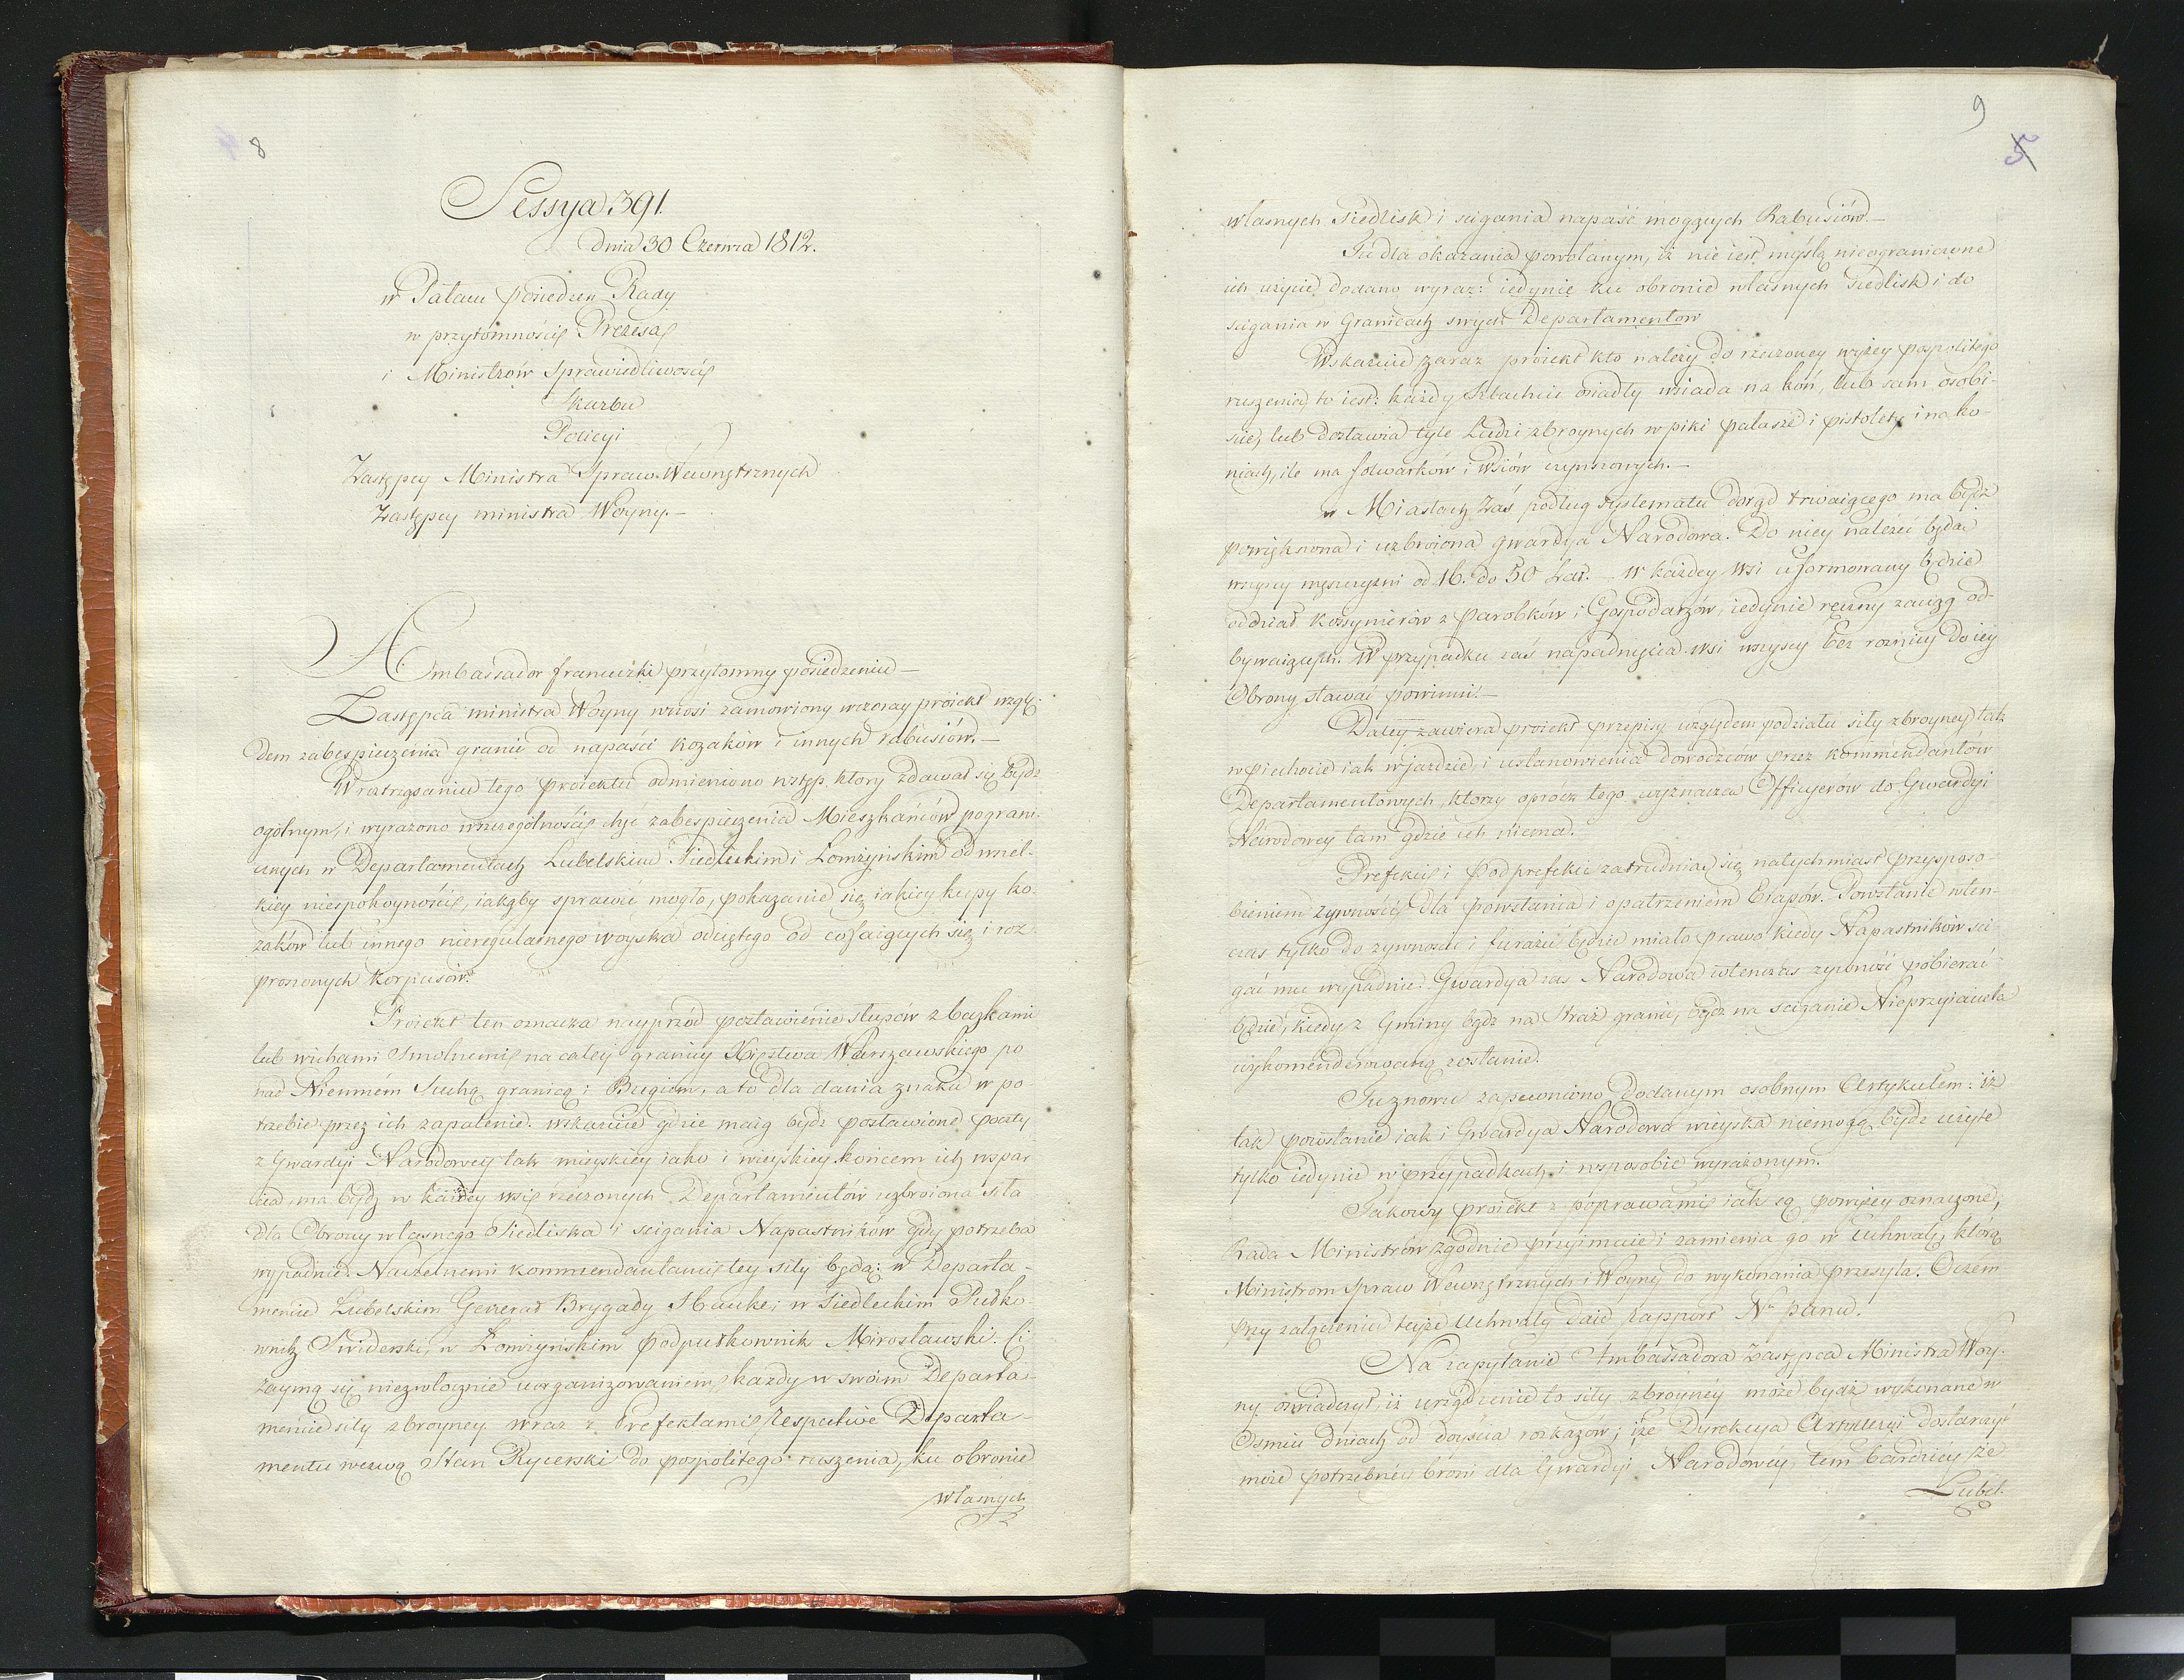 8
Sessya 391.
Dnia 30 Czerwca 1812.
w Pałacu posiedzen Rady
w przytomności Prezesa
i Ministrów Sprawiedliwości
Skarbu
Policyi
Zastępcy Ministra Spraw Wewnętrznych
Zastępcy ministra Woyny.—
Ambassador francuzki przytomny posiedzeniu—
Zastępca ministra Woyny wnosi zamowiony wczoray proiekt wzglę-
dem zabespieczenia granic od napaści kozaków i innych rabusiów.—
W roztrząsaniu tego proiektu odmieniono wstęp, ktory zdawał się bydz
ogólnym, i wyrażono wszczególności chęć zabespieczenia Mieszkańców pograni-
cznych w Departamentach Lubelskim Siedleckim i Łomżyńskim od wszel-
kiey niespokoyności, iakąby sprawić mogło, pokazanie się iakiey kupy ko-
zaków lub innego nieregularnego woyska odciętego od cofaiących się i roz-
proszonych korpusów.
Proiekt ten oznacza nayprzód postawienie słupów z beczkami
lub wiechami smolnemi na całey granicy Xięstwa Warszawskiego po
nad Niemnem suchą granicą i Bugiem, a to dla dania znaku w po
trzebie przez ich zapalenie. wskazuie gdzie maią bydź postawione poczty
z Gwardyi Narodowey tak mieyskiey iako i wieyskiey. końcem ich wspar
cia, ma bydź w każdey wsi rzeczonych Departamentów uzbroiona siła
dla Obrony własnego Siedliska i scigania Napastników gdy potrzeba
wypadnie. Naczelnemi kommendantami tey siły będą: w Departa-
mencie Lubelskim Generał Brygady Hauke; w Siedleckim Pułko-
wnik Swiderski, w Łomżyńskim podpułkownik Mirosławski. Ci
zaymą się niezwłocznie uorganizowaniem każdy w swoim Departa-
mencie siły zbroyney wraz z Prefektami respective Departa-
mentu wezwą Stan Rycerski do pospolitego ruszenia, ku obronie
własnych
9
5
własnych Siedlisk i scigania napaść mogących Rabusiów.—
Tu dla okazania powołanym, iż nie iest myślą nieograniczone
ich użycie dodano wyraz: iedynie ku obronie własnych Siedlisk i do
scigania w Granicach swych Departamentow
Wskazuie zaraz proiekt kto należy do rzeczoney wyżey pospolitego
ruszenia, to iest: każdy Szlachcic osiadły wsiada na koń, lub sam osobi-
scie, lub dostawia tyle Ludzi zbroynych w piki pałasze i pistolety i na ko-
niach, ile ma folwarków i wsiów czynszowych.—
w Miastach zaś podług systematu dotąd trwaiącego ma bydź
powiększona i uzbroiona gwardya Narodowa. Do niey należeć będą
wszyscy męszczyzni od 16. do 50 Lat. — w każdey wsi uformowany będzie
oddział kossynierów z Parobków i Gospodarzów, iedynie ręczny zaciąg od-
bywaiących. W przypadku zaś napadnięcia wsi wszyscy bez roznicy do iey
Obrony stawać powinni.—
Daley zawiera proiekt przepisy względem podziału siły zbroyney tak
w piechocie iak w jazdzie, i ustanowienia dowodzców przez kommendantów
Departamentowych, ktorzy oprocz tego wyznacza Officyerów do Gwardyi
Narodowey tam gdzie ich niema.
Prefekci i Podprefekci zatrudnią się natychmiast przysposo-
bieniem żywności dla powstania i opatrzeniem Etapów. Powstanie wten-
czas tylko do żywności i furażu będzie miało prawo kiedy Napastników sci-
gać mu wypadnie. Gwardya zas Narodowa wtenczas zywność pobierać
będzie, kiedy z Gminy bądz na Straz granic, bądz na sciganie Nieprzyiaciela
wykomenderowaną zostanie.
Tu znowu zapewniono dodanym osobnym Artykułem: iż
tak powstanie iak i Gwardya Narodowa wieyska niemogą bydz użyte
tylko iedynie w przypadkach i wsposobie wyrażonym.
Takowy proiekt z poprawami iak są powyżey oznaczone,
Rada Ministrów zgodnie przyimuie i zamienia go w Uchwałę, którą
Ministrom Spraw Wewnętrznych i Woyny do wykonania przesyła. Oczem
przy załączeniu teyże Uchwały daie rapport Nu panu.
Na zapytanie Ambassadora Zastępca Ministra Woy-
ny oświadczył, iż urządzenie to siły zbroyney może bydź wykonane w
Osmiu dniach od doyścia rozkazów; iże Dyrekcya Artylleryi dostarczyć
może potrzebney broni dla Gwardyi Narodowey, tem bardziey że
Lubel.